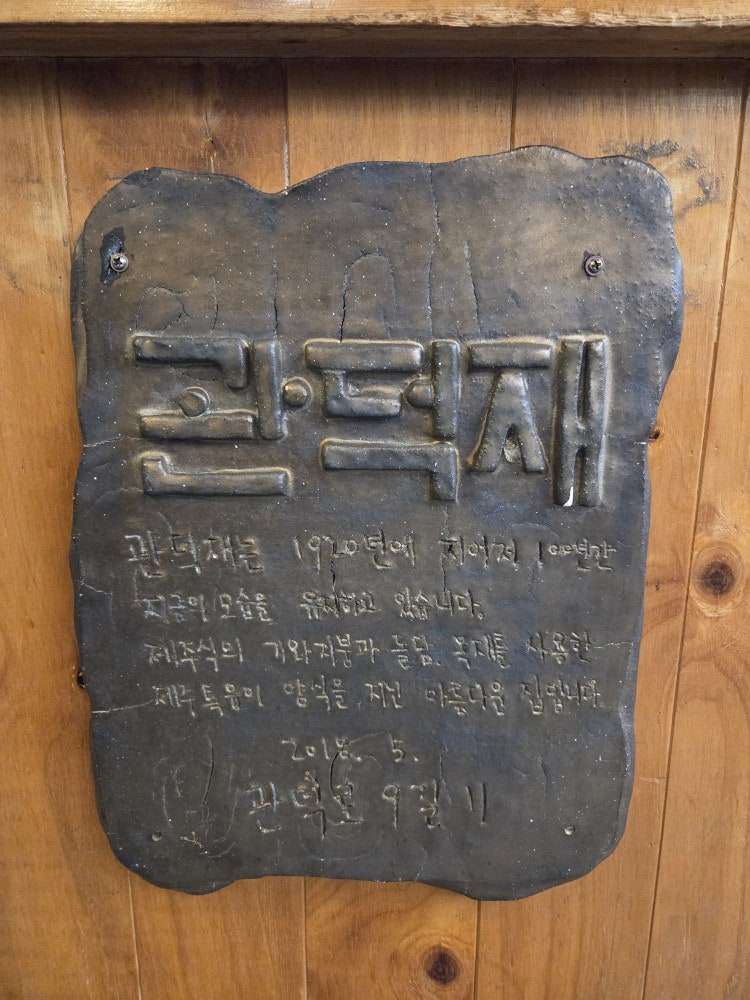 관덕재
관덕재는 1920년에 지어져 100년간
지금의 모습을 유지하고 있습니다.
제주식의 기와지붕과 돌담, 목재를 사용한
제주특유의 양식을 지닌 아름다운 집입니다
2018. 5.
관덕로 9길 11